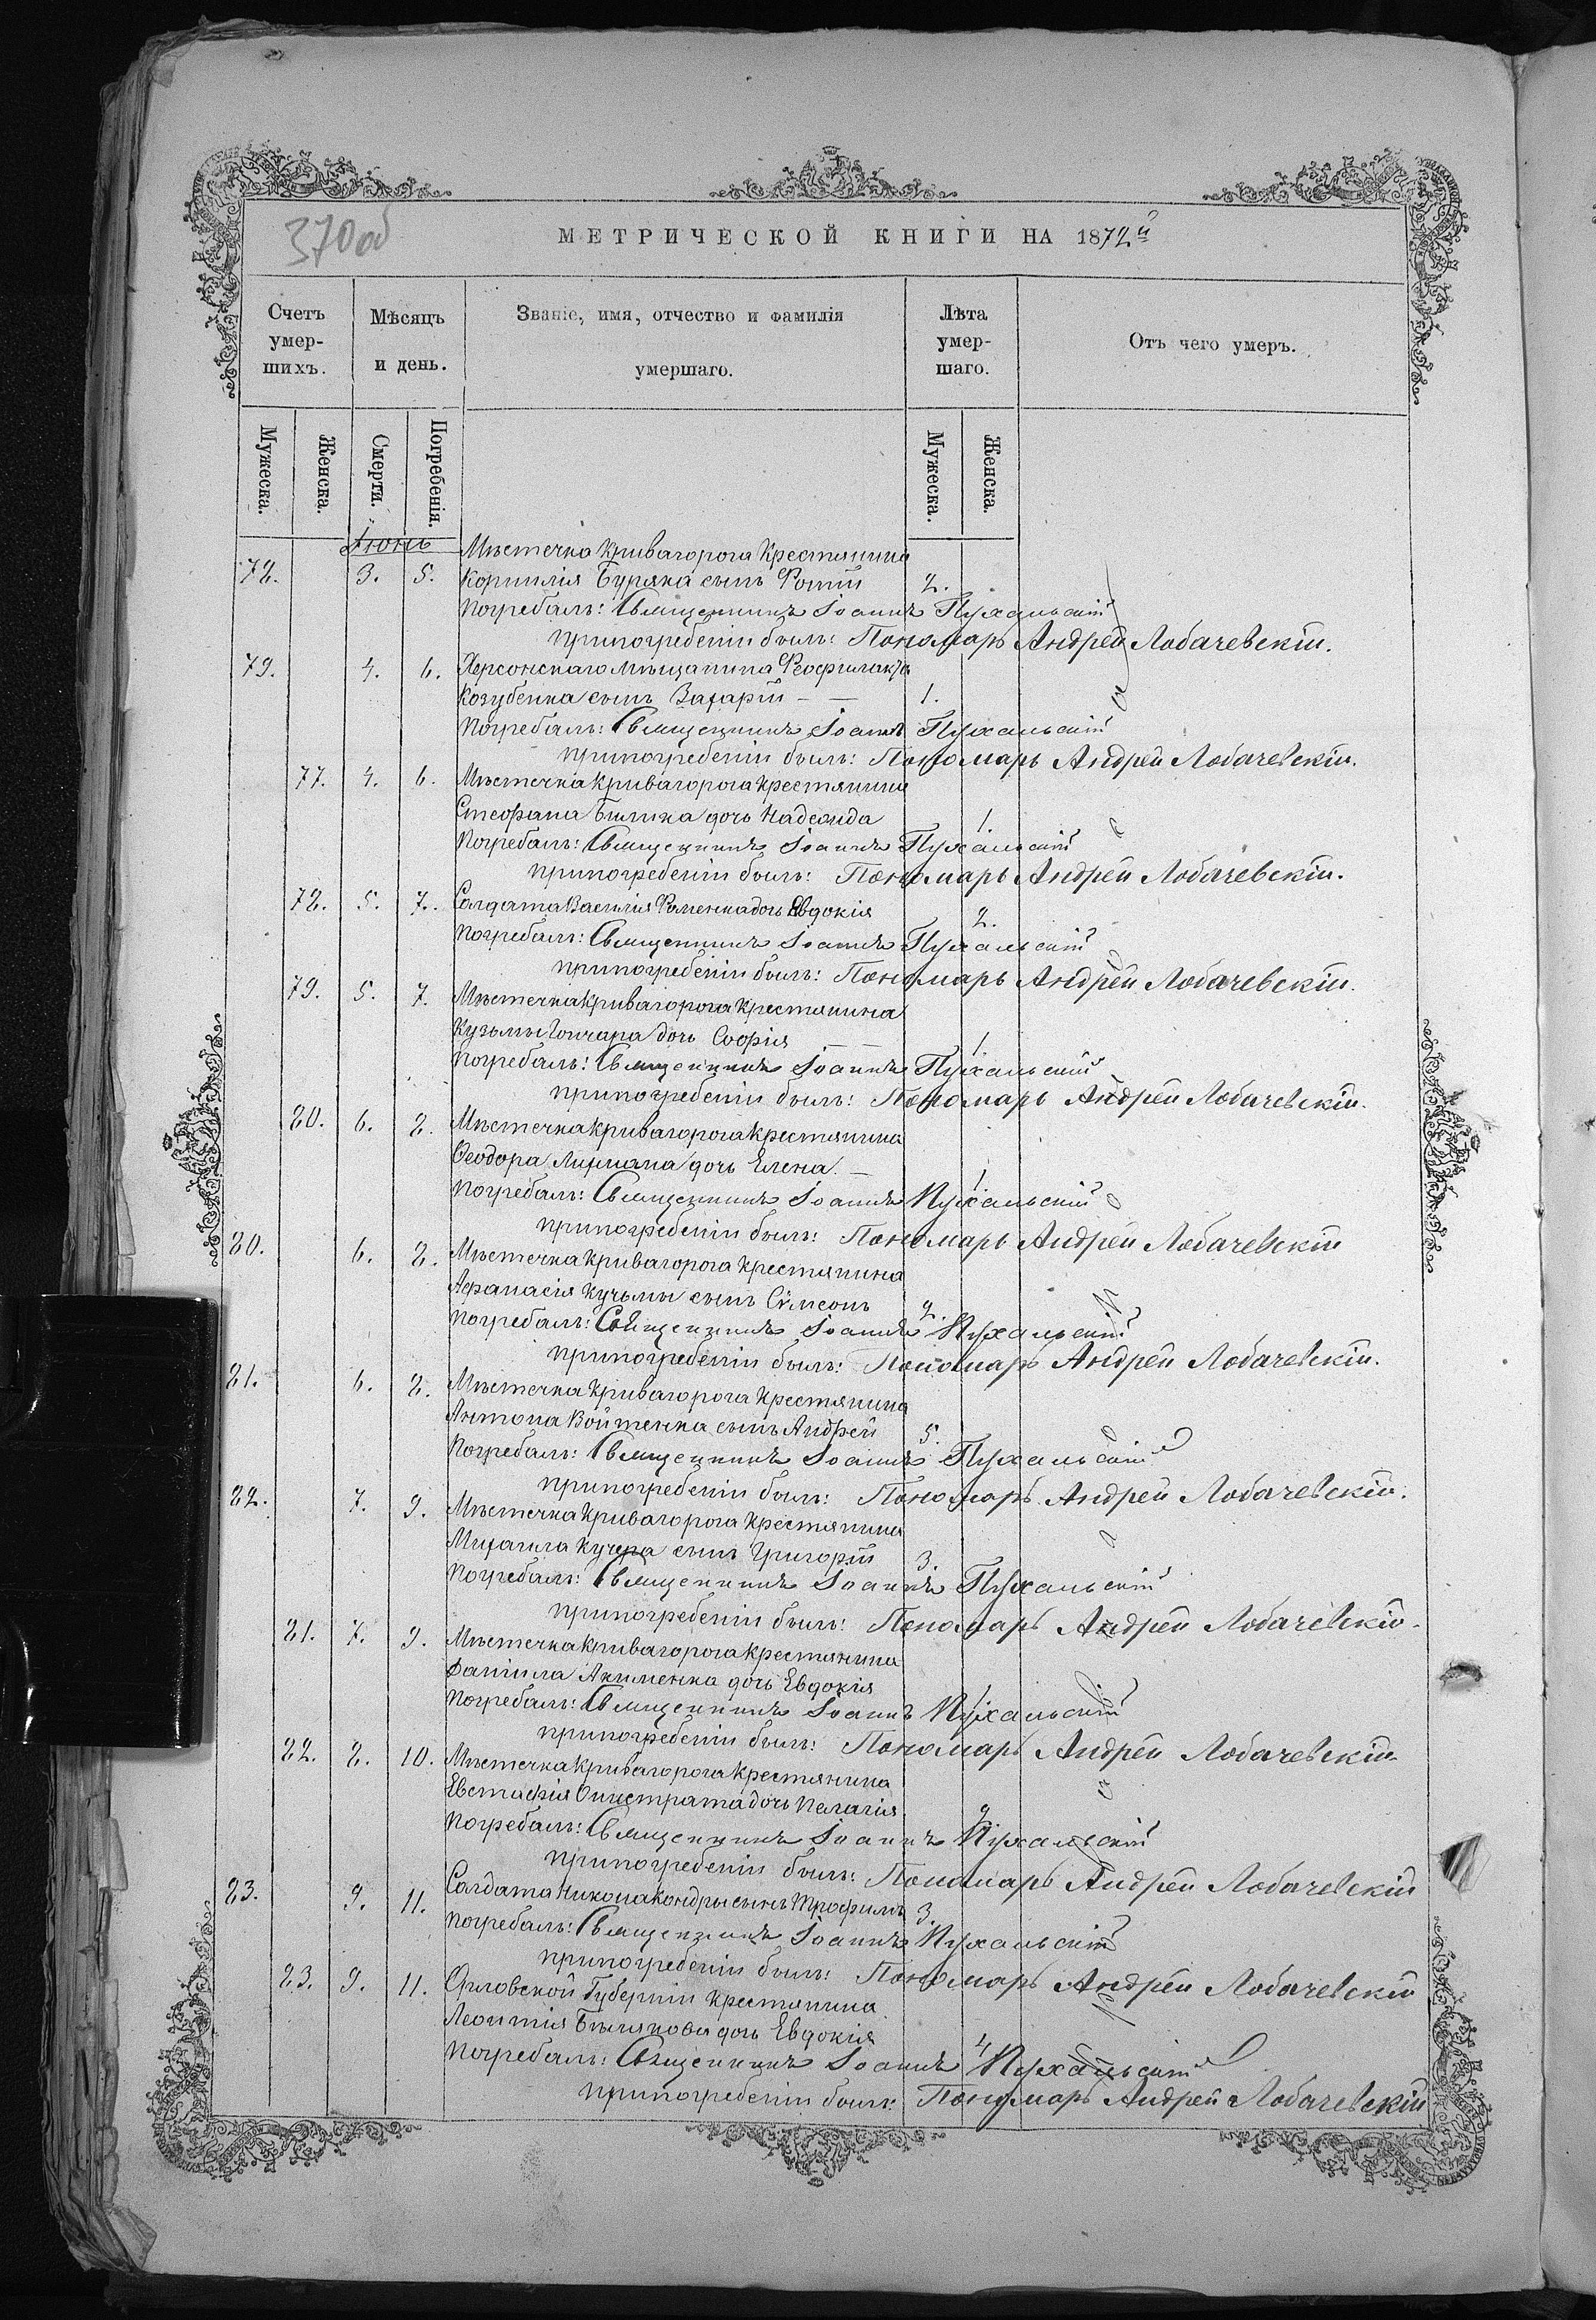 370об
МЕТРИЧЕСКОЙ КНИГИ НА 1872й
Счетъ умер-шихъ.
Мѣсяцъ и день.
Званіе, имя, отчество и фамилія умершаго.
Лѣта умер-шаго.
Отъ чего умеръ.
Мужеска.
Женска.
Смерти.
Погребенія.
Мужеска.
Женска.
Іюнь
Мѣстечка Кривагорога Крестянина
78. 3. 5. Корнилія Буряка сынъ Фотій 2.
Погребалъ: Священникъ Іоаннъ Пухальскій
припогребеніи былъ: Пономарь Андрей Лобачевскій.
79. 4. 6. Херсонскаго мѣщанина Феофилакта
Козубенка сынъ Захарій 1.
Погребалъ: Священникъ Іоаннъ Пухальскій
припогребеніи былъ: Пономарь Андрей Лобачевскій.
77. 4. 6. Мѣстечка Кривагорога Крестянина
Стефана Билика дочь Надежда 1.
Погребалъ: Священникъ Іоаннъ Пухальскій
припогребеніи былъ: Пономарь Андрей Лобачевскій.
78. 5. 7. Солдата Василія Роменка дочь Евдокія 2.
Погребалъ: Священникъ Іоаннъ Пухальскій
припогребеніи былъ: Пономарь Андрей Лобачевскій.
79. 5. 7. Мѣстечка Кривагорога Крестянина
Кузьмы Гончара дочь Софія 1.
Погребалъ: Священникъ Іоаннъ Пухальскій
припогребеніи былъ: Пономарь Андрей Лобачевскій.
80. 6. 8. Мѣстечка Кривагорога Крестянина
Феодора Лирмана дочь Елена 1
Погребалъ: Священникъ Іоаннъ Пухальскій
припогребеніи былъ: Пономарь Андрей Лобачевскій
80. 6. 8. Мѣстечка Кривагорога Крестянина
Афанасія Кучьмы сынъ Сѵмеонъ 2.
Погребалъ: Священникъ Іоаннъ Пухальскій
припогребеніи былъ: Пономарь Андрей Лобачевскій.
81. 6. 8. Мѣстечка Кривагорога Крестянина
Антона Войтенка сынъ Андрей 5.
Погребалъ: Священникъ Іоаннъ Пухальскій
припогребеніи былъ: Пономарь Андрей Лобачевскій.
82. 7. 9. Мѣстечка Кривагорога Крестянина
Михаила Кучера сынъ Григорій 3.
Погребалъ: Священникъ Іоаннъ Пухальскій
припогребеніи былъ: Пономарь Андрей Лобачевскій.
81. 7. 9. Мѣстечка Кривагорога Крестянина
Даніила Акименка дочь Евдокія 1
Погребалъ: Священникъ Іоаннъ Пухальскій
припогребеніи былъ: Пономарь Андрей Лобачевскій.
82. 8. 10. Мѣстечка Кривагорога Крестянина
Евстафія дочь Пелагія
Погребалъ: Священникъ Іоаннъ Пухальскій
припогребеніи былъ: Пономарь Андрей Лобачевскій
83. 9. 11. Солдата Никона Кондры сынъ Трофимъ 3.
Погребалъ: Священникъ Іоаннъ Пухальскій
припогребеніи былъ: Пономарь Андрей Лобачевскій
83. 9. 11. Орловской Губерніи Крестянина
Леонтія Бѣлякова дочь Евдокія 4
Погребалъ: Священникъ Іоаннъ Пухальскій
припогребеніи былъ: Пономарь Андрей Лобачевскій